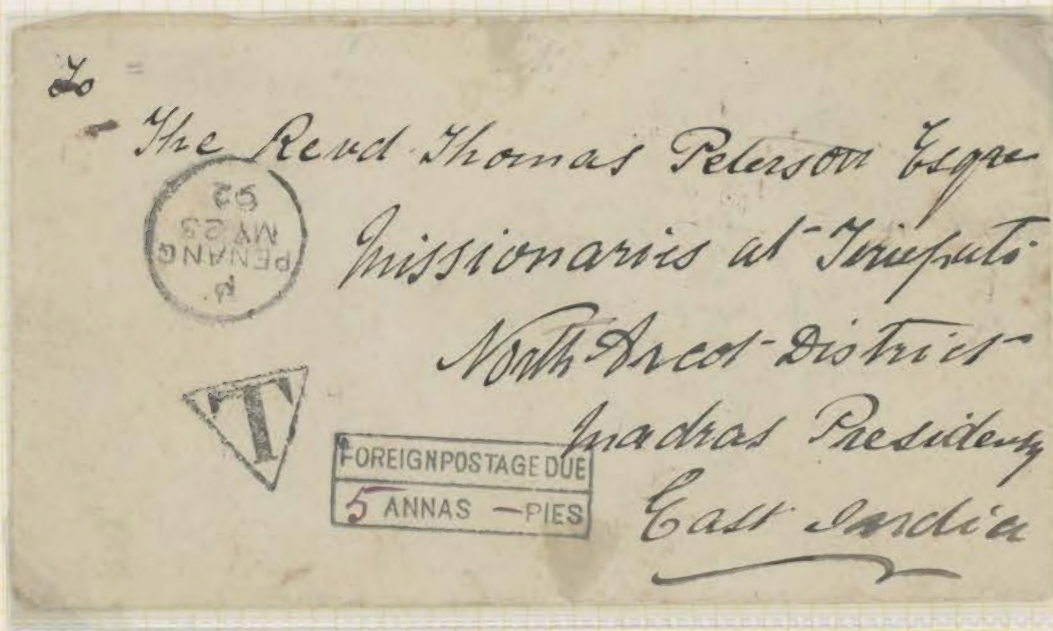 To
The Revd Thomas Peterson Esqre
Missionaries at Tiriupati
North Arcot District
Madras Presidency
East India
P
PENANG
MY 23
92
T
FOREIGN POSTAGE DUE
5 ANNAS — PIES